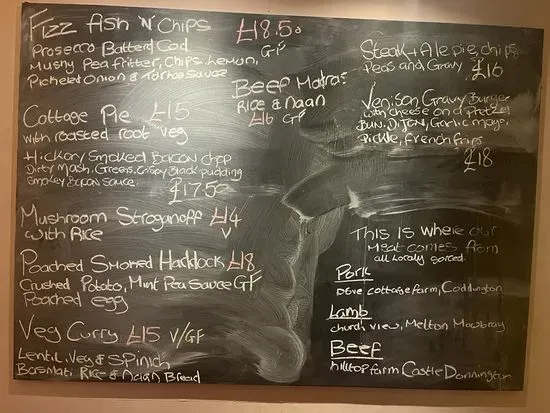 Fizz Ash 'N' Chips £18.50
Prosecco Batterd Cod GF
Mushy Pea fritter, Chips, Lemon,
Pickeled Onion & Tartar Sauce
Beef Madras
Rice & Naan
£16 GF
Cottage Pie £15
with roasted root veg
Hickory Smoked Bacon Chop
Dirty Mash, Greens, Crispy Black pudding
Smokey Bacon Sauce. £17.50
Mushroom Stroganoff £14
with Rice V
Poached Smoked Haddock £18
Crushed Potato, Mint Pea Sauce GF
Poached egg
Veg Curry £15 V/GF
Lentil, Veg & Spinich
Basmati Rice & Naan Bread
Steak + Ale pie, chips
Peas and Gravy £16
Venison Gravy Burger
with cheese on a Pretzel
Bun, Dijon, Garlic mayo,
pickle, french frips
£18
This is where our
Meat comes from
all locally sorced.
Pork
Dove cottage farm, Coddington
Lamb
church view, Melton Mowbray
Beef
hilltop farm Castle Donnington